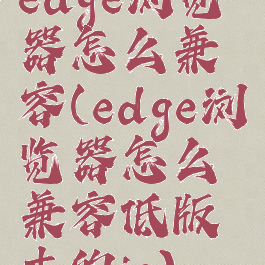 edge浏览
器怎么兼
容(edge浏
览器怎么
兼容低版
本的ie)